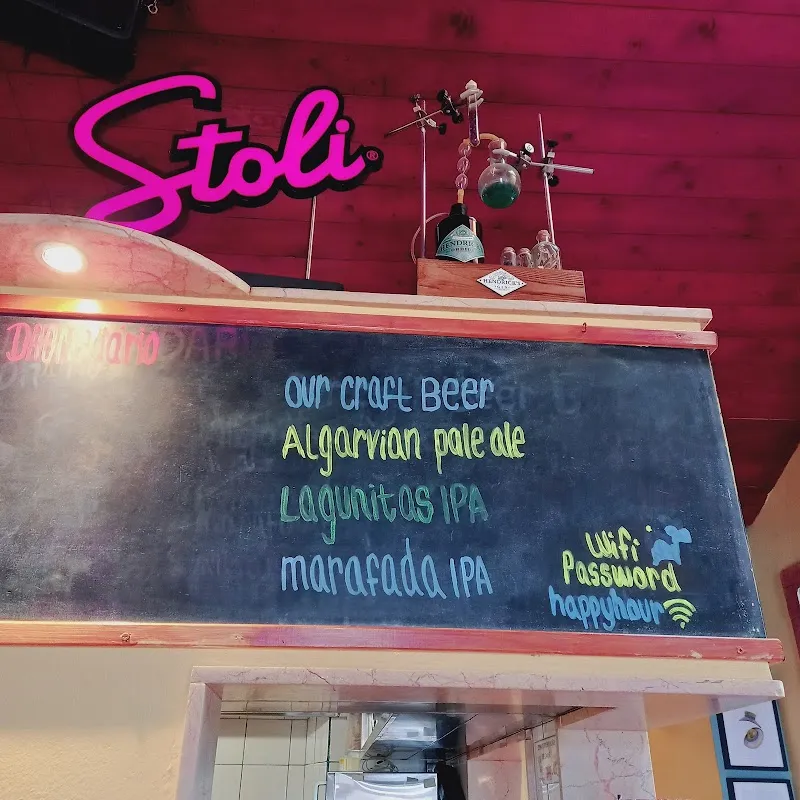 Stoli®
HENDRICK'S
our craft Beer
Algarvian pale ale
Lagunitas IPA
marafada IPA
Wifi
Password
happyhour